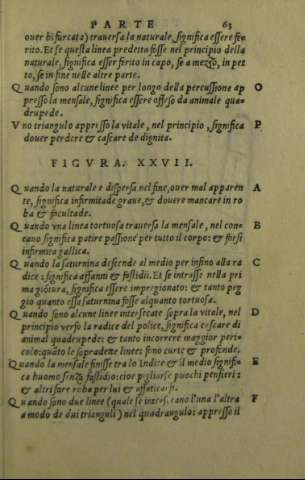 PARTE 63
ouer bifurcata) trauersa la naturale, significa essere fe=
rito. Et se questa linea predetta fosse nel principio della
naturale, significa esser ferito in capo, se a mezo, in pet
to, se in fine nelle altre parte.
Quando sono alcune linee per longo della percussione ap O
presso la mensale, significa essere offeso da animale qua=
drupede.
Vno triangulo appresso la vitale, nel principio, significa P
douer perdere & cascare de dignita.
FIGVRA. XXVII.
Quando la naturale e dispersa nel fine, ouer mal apparen A
te, significa infirmitade graue, & douere mancare in ro
ba & facultade.
Quando vna linea tortuosa trauersa la mensale, nel con= B
cauo significa patire passione per tutto il corpo: & forsi
infirmita gallica.
Quando la saturnina descende al medio per infino alla ra C
dice: significa affanni & fastidii. Et se intrasse nella pri
ma giotura, significa essere impregionato: & tanto peg
gio quanto essa saturnina fosse alquanto tortuosa.
Quando sono alcune linee intersecate sopra la vitale, nel D
principio verso la radice del police, significa cascare di
animal quadrupede: & tanto incorrere maggior peri=
colo: quato le sopradette linee sono curte & profonde.
Quando la mensale finisse tra lo Indice & il medio signifi= E
ca huomo senza fastidio: cioe pigliarse puochi pensieri:
& altri fare roba per lui & affaticarsi.
Quando sono due linee (quale se inters. cano l'una l'altra F
a modo de dui trianguli) nel quadrangulo: appresso il